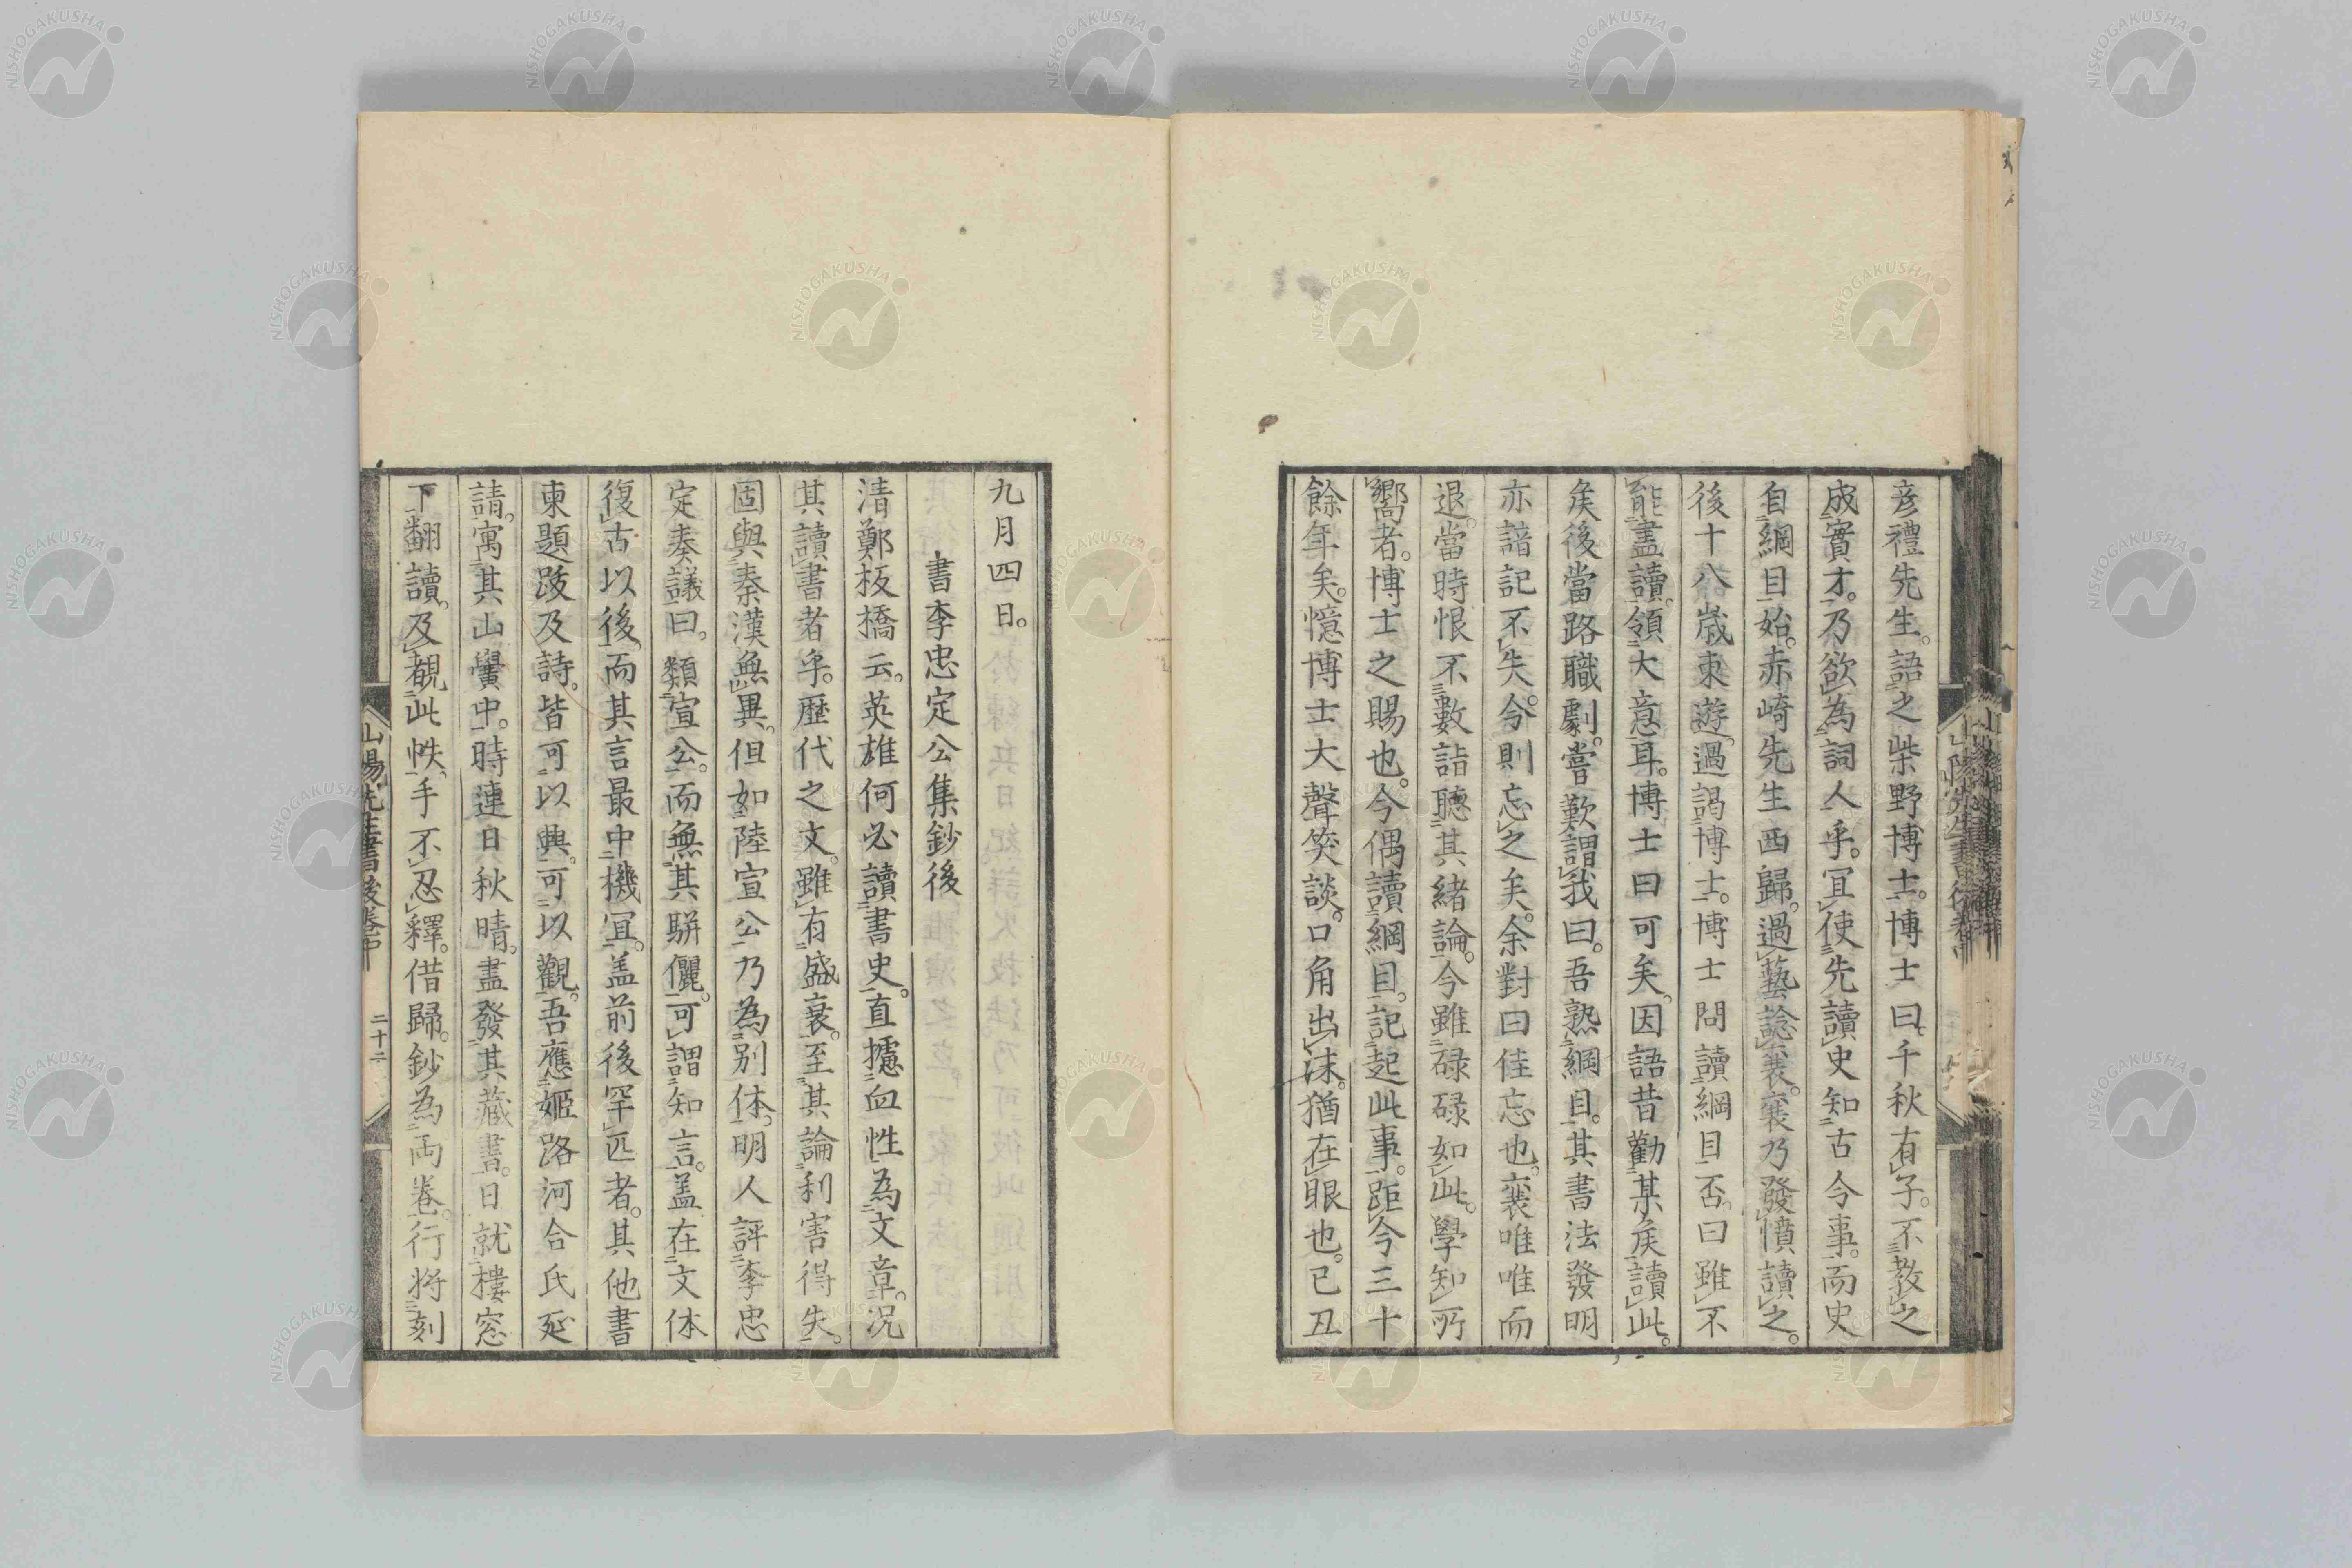 彦禮先生。語之柴野博士。博士曰。千秋有子。不教之
成實才。乃欲為詞人乎。冝使先讀史知古今事。而史
自綱目始。赤崎先生西歸。過藝諗襄。襄乃發憤讀之。
後十八歳東遊。過謁博士。博士問讀綱目否。曰雖不
能盡讀。領大意耳。博士曰可矣。因語昔勸某矦讀此。
矦後當路職劇。嘗歎謂我曰。吾熟綱目。其書法發明
亦諳記不失。今則忘之矣。余對曰佳忘也。襄唯唯而
退。當時恨不數詣聽其緒論。今雖碌碌如此。學知所
嚮者。博士之賜也。今偶讀綱目。記起此事。距今三十
餘年矣。憶博士大聲笑談。口角出沫。猶在眼也。已丑
九月四日。
書李忠定公集鈔後
清鄭板橋云。英雄何必讀書史。直攄血性為文章。况
其讀書者乎。歴代之文。雖有盛衰。至其論利害得失。
固與秦漢無異。但如陸宣公乃為别体。明人評李忠
定奏議曰。類宣公。而無其駢儷。可謂知言。盖在文体
復古以後。而其言最中機冝。盖前後罕匹者。其他書
柬題跋及詩。皆可以興。可以觀。吾應姫路河合氏延
請。寓其山黌中。時連日秋晴。盡發其藏書。日就樓窓
下翻讀。及覩此帙。手不忍釋。借歸。鈔為兩巻。行将刻
山陽先生書後卷中 二十二